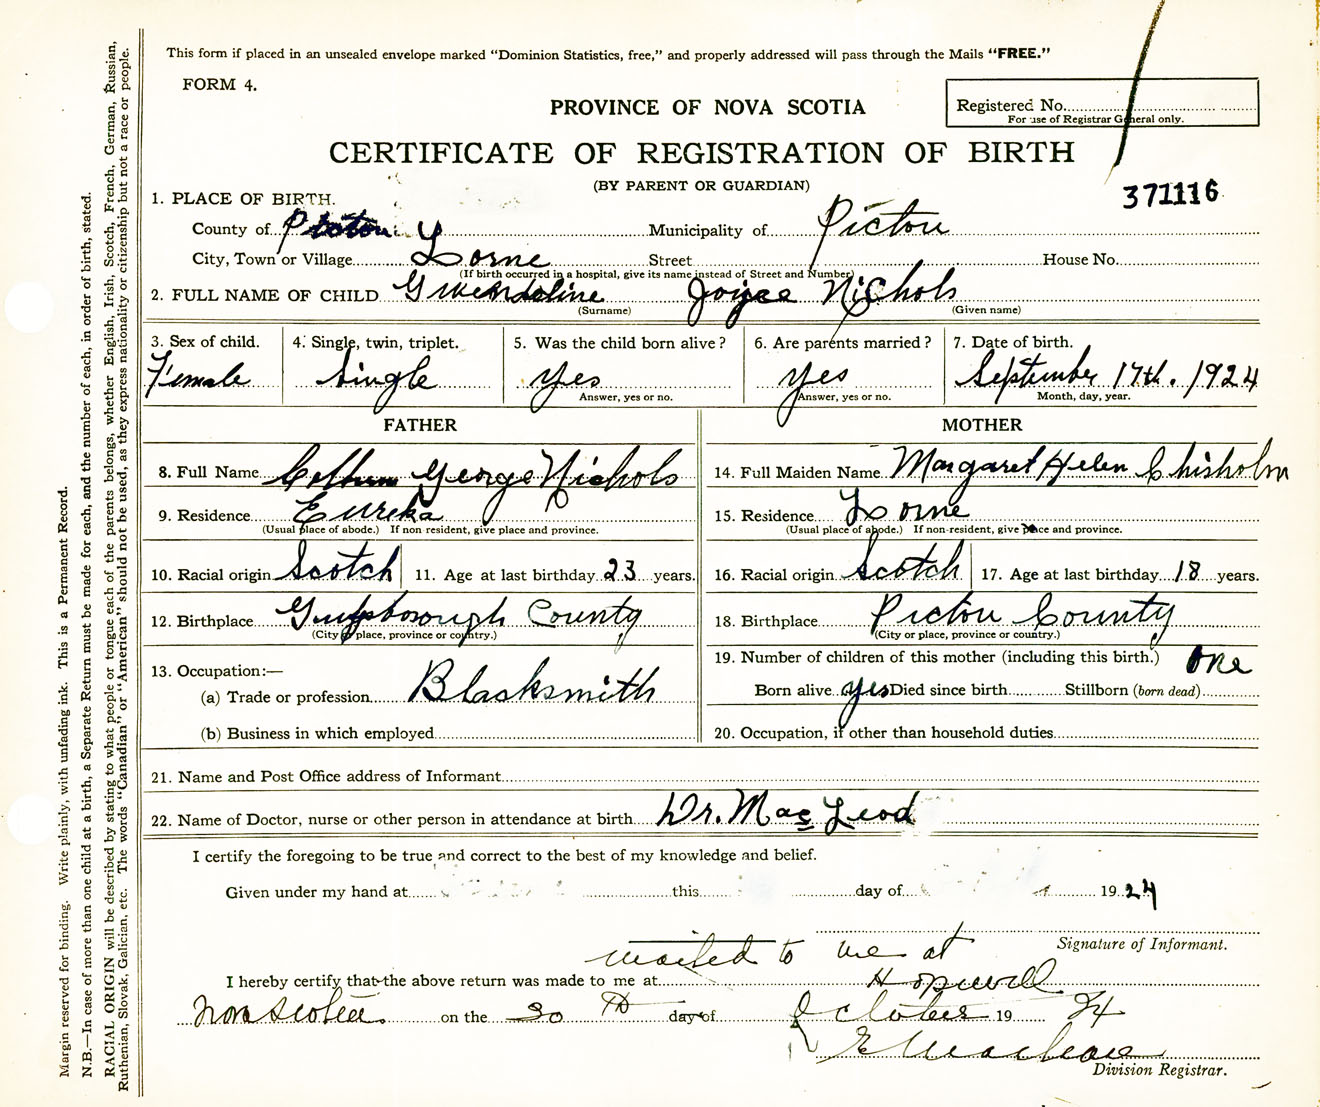 This form if placed in an unsealed envelope marked "Dominion Statistics, free," and properly addressed will pass through the Mails "FREE."
FORM 4.
PROVINCE OF NOVA SCOTIA
Registered No.
For use of Registrar General only.
CERTIFICATE OF REGISTRATION OF BIRTH
(BY PARENT OR GUARDIAN)
371116
1. PLACE OF BIRTH.
County of Pictou Municipality of Pictou
City, Town or Village Lorne Street House No.
(If birth occurred in a hospital, give its name instead of Street and Number)
2. FULL NAME OF CHILD Gwendoline Joyce Nichols
(Surname) (Given name)
3. Sex of child. 4. Single, twin, triplet. 5. Was the child born alive? 6. Are parents married? 7. Date of birth.
Female Single yes yes September 17th. 1924
Answer, yes or no. Answer, yes or no. Month, day, year.
FATHER MOTHER
8. Full Name George Nichols 14. Full Maiden Name Margaret Helen Chisholm
9. Residence Eureka 15. Residence Lorne
(Usual place of abode.) If non-resident, give place and province. (Usual place of abode.) If non-resident, give place and province.
10. Racial origin Scotch 11. Age at last birthday 23 years. 16. Racial origin Scotch 17. Age at last birthday 18 years.
12. Birthplace Guysborough County 18. Birthplace Pictou County
(City or place, province or country.) (City or place, province or country.)
13. Occupation:— 19. Number of children of this mother (including this birth.) one
(a) Trade or profession Blacksmith Born alive yes Died since birth Stillborn (born dead)
(b) Business in which employed 20. Occupation, if other than household duties
21. Name and Post Office address of Informant
22. Name of Doctor, nurse or other person in attendance at birth Dr. MacLeod
I certify the foregoing to be true and correct to the best of my knowledge and belief.
Given under my hand at this day of 1924
Signature of Informant.
mailed to me at
I hereby certify that the above return was made to me at Hopewell
Nova Scotia on the 30th day of October 19 24
Division Registrar.
Margin reserved for binding. Write plainly, with unfading ink. This is a Permanent Record.
N.B.—In case of more than one child at a birth, a Separate Return must be made for each, and the number of each, in order of birth, stated.
RACIAL ORIGIN will be described by stating to what people or tongue each of the parents belongs, whether English, Irish, Scotch, French, German, Russian,
Ruthenian, Slovak, Galician, etc. The words "Canadian" or "American" should not be used, as they express nationality or citizenship but not a race or people.